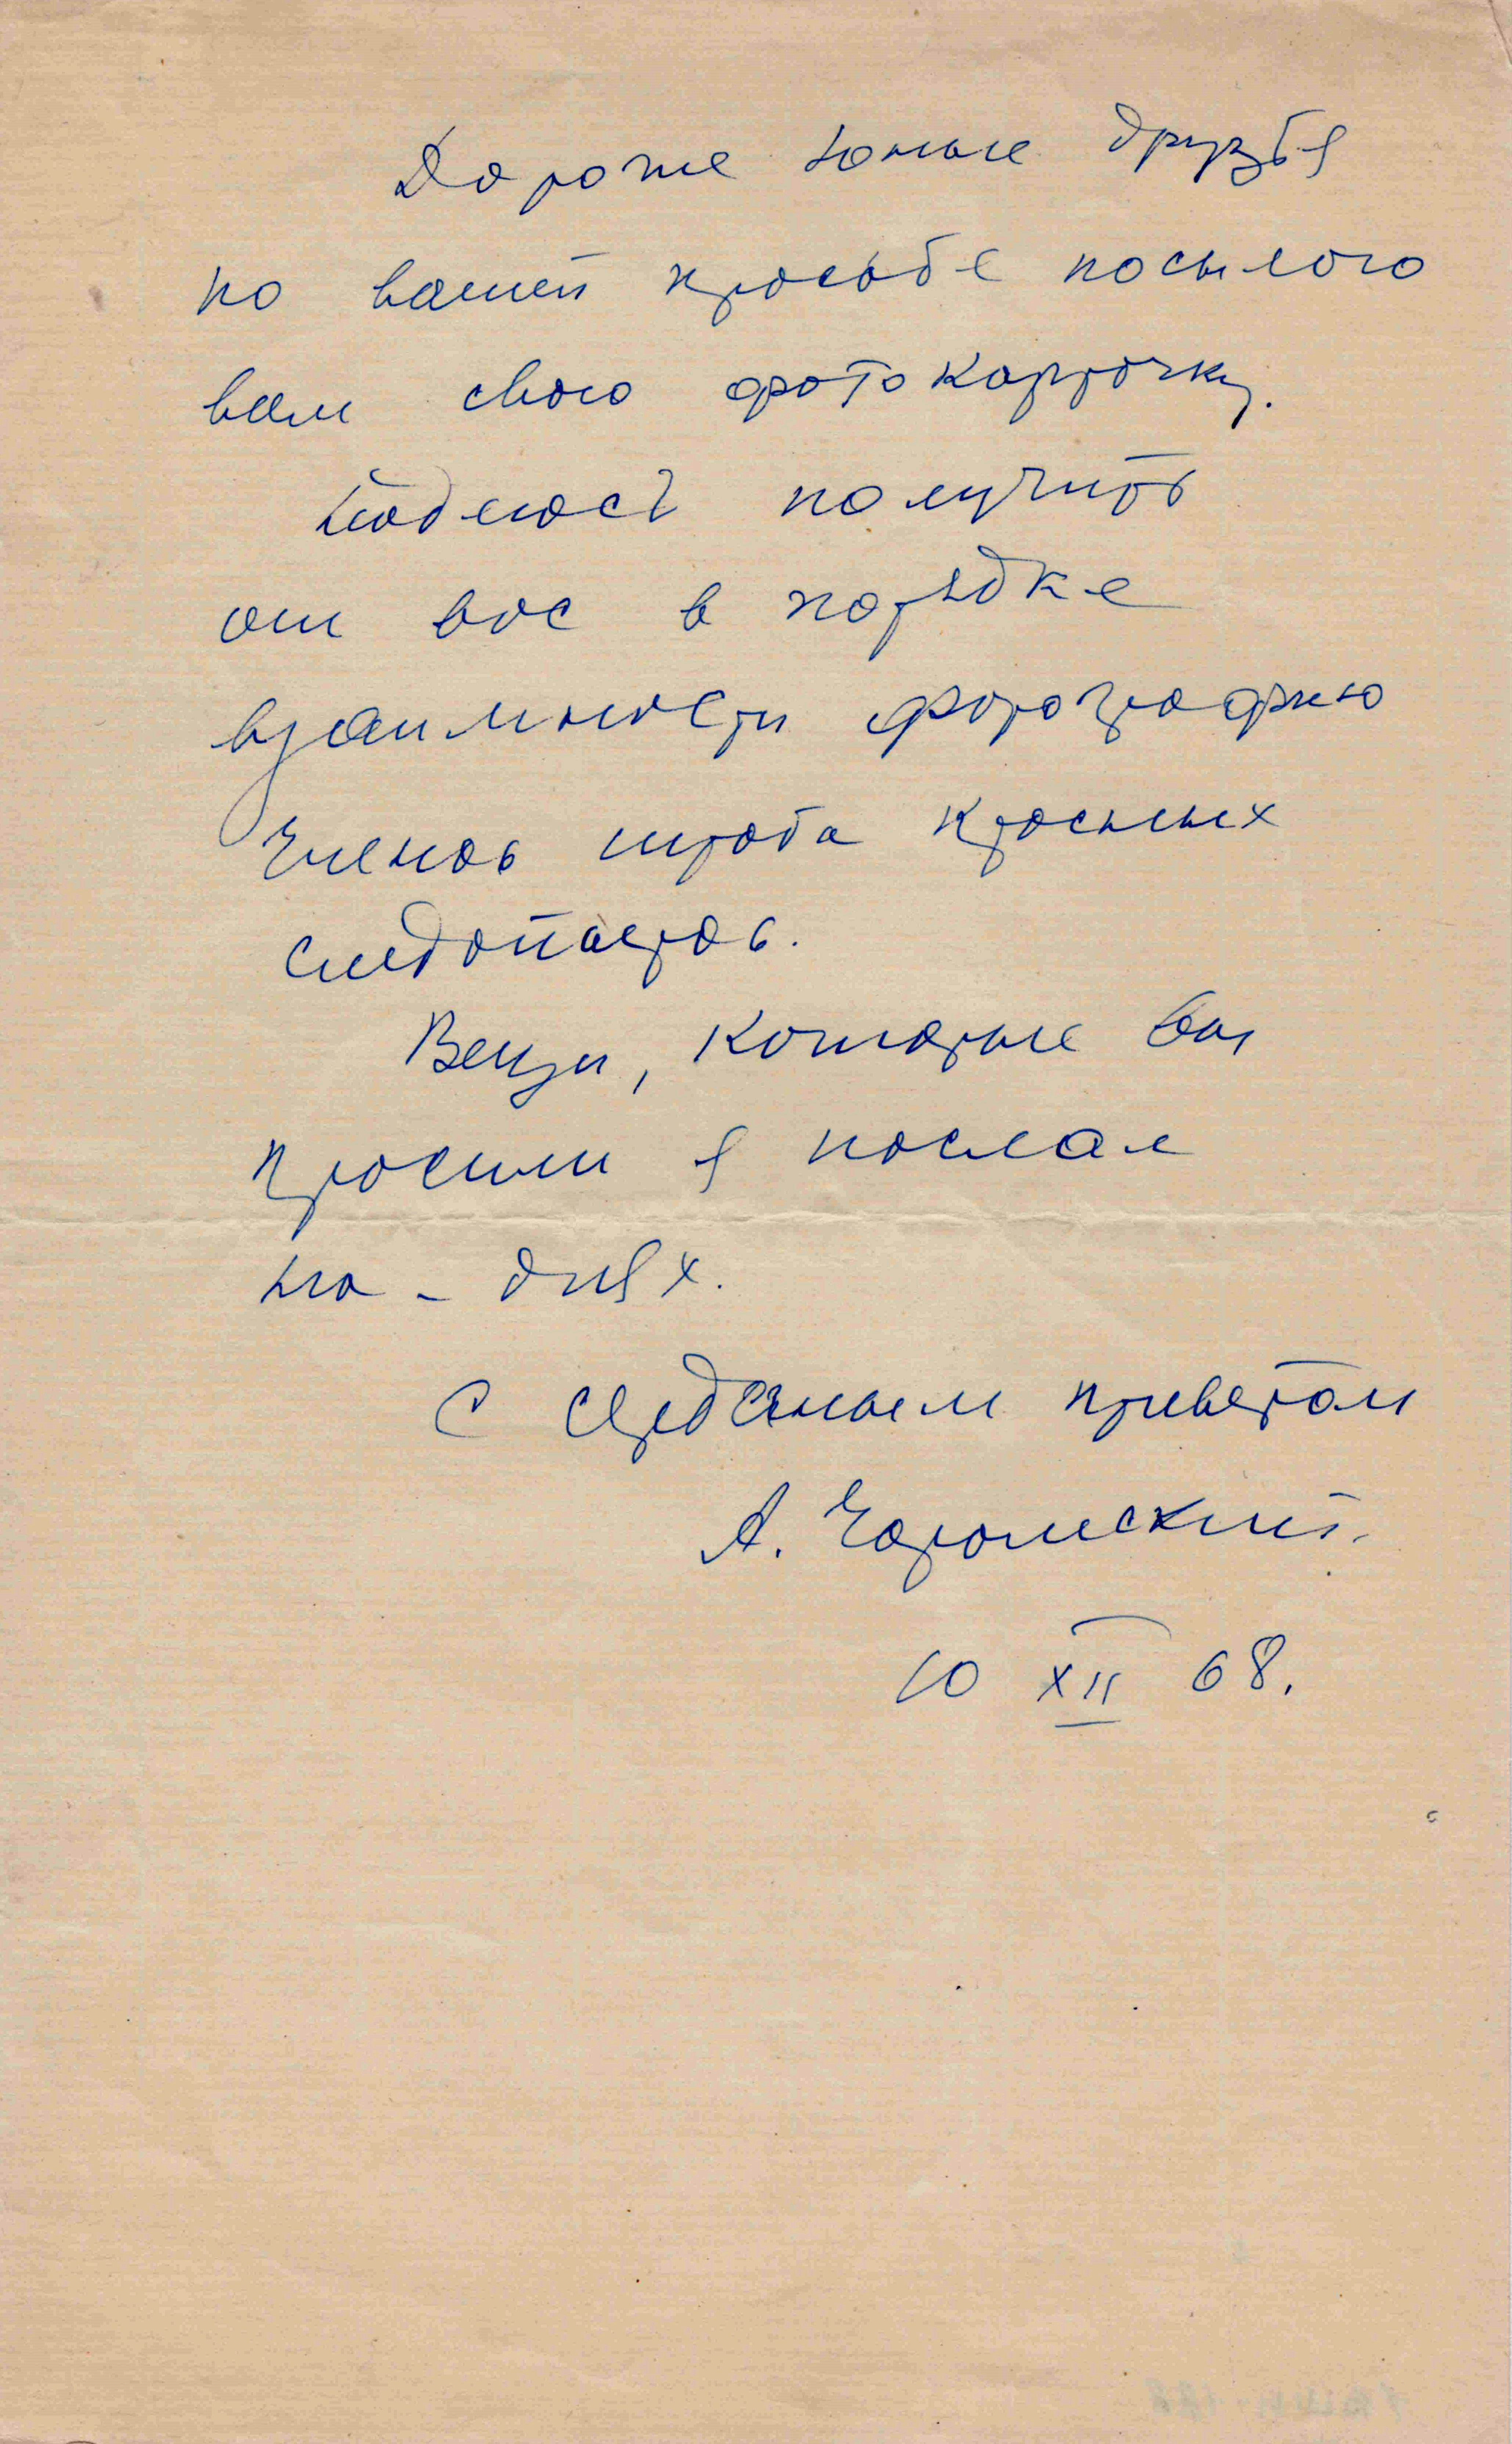 Дорогие юные друзья
по вашей просьбе посылаю
вам свою фотокарточку.
Надеюсь получить
от вас в порядке
взаимности фотографию
членов штаба красных
следопытов.
Вещи, которые вы
просили я послал
на-днях.
С сердечным приветом
А. Чаромский.
10 XII 68.